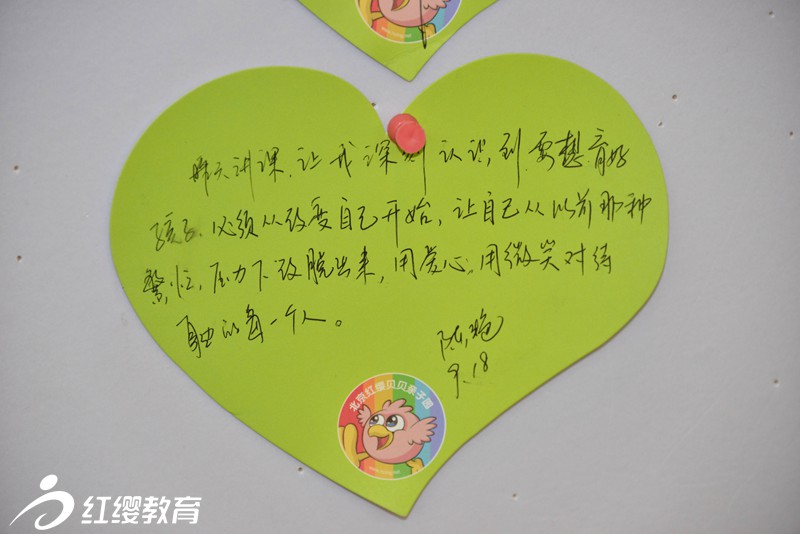 昨天讲课,让我深刻认识到要想育好
孩子,必须从改变自己开始,让自己从以前那种
繁忙,压力下改脱出来,用爱心,用微笑对待
身边的每一个人。
9.18
北京红缨贝贝亲子园
红缨教育